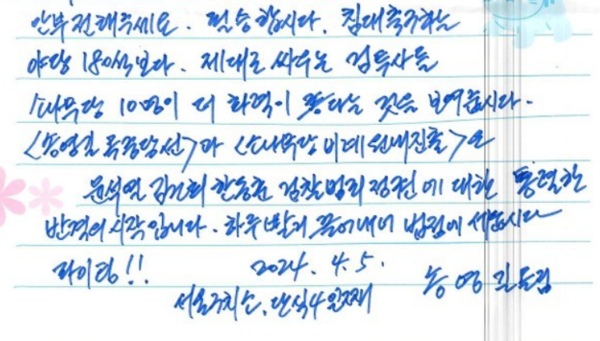 안부 전해주세요. 필승합시다. 침대축구하는
야당 180석보다. 제대로 싸우는 검투사들
소나무당 10명이 더 화력이 좋다는 것을 보여줍시다.
<송영길 옥중당선>과 <소나무당 이데 원내진출>은
윤석열 김건희 한동훈 검찰범죄정권에 대한 통렬한
반격의 시작입니다. 하루빨리 끌어내려 법정에 세웁시다
화이팅!! 2024. 4. 5.
서울구치소, 단식4일째 송영길드림